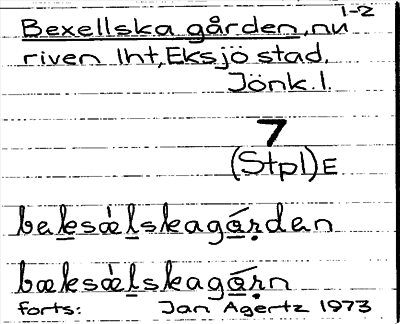 1-2
Bexellska gården, nu
riven lht, Eksjö stad.
Jönk.l.
7
(Stpl)E
beksǽlskagá̱ṛdan
bæksǽlskagá̱ṛn
forts: Jan Agertz 1973